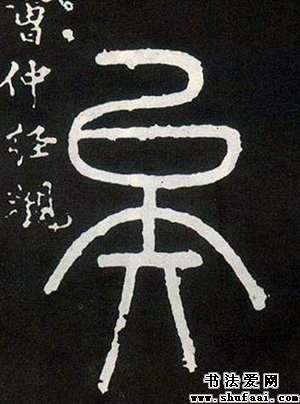 曹仲经觀
吳
书法爱网
www.shufaai.com